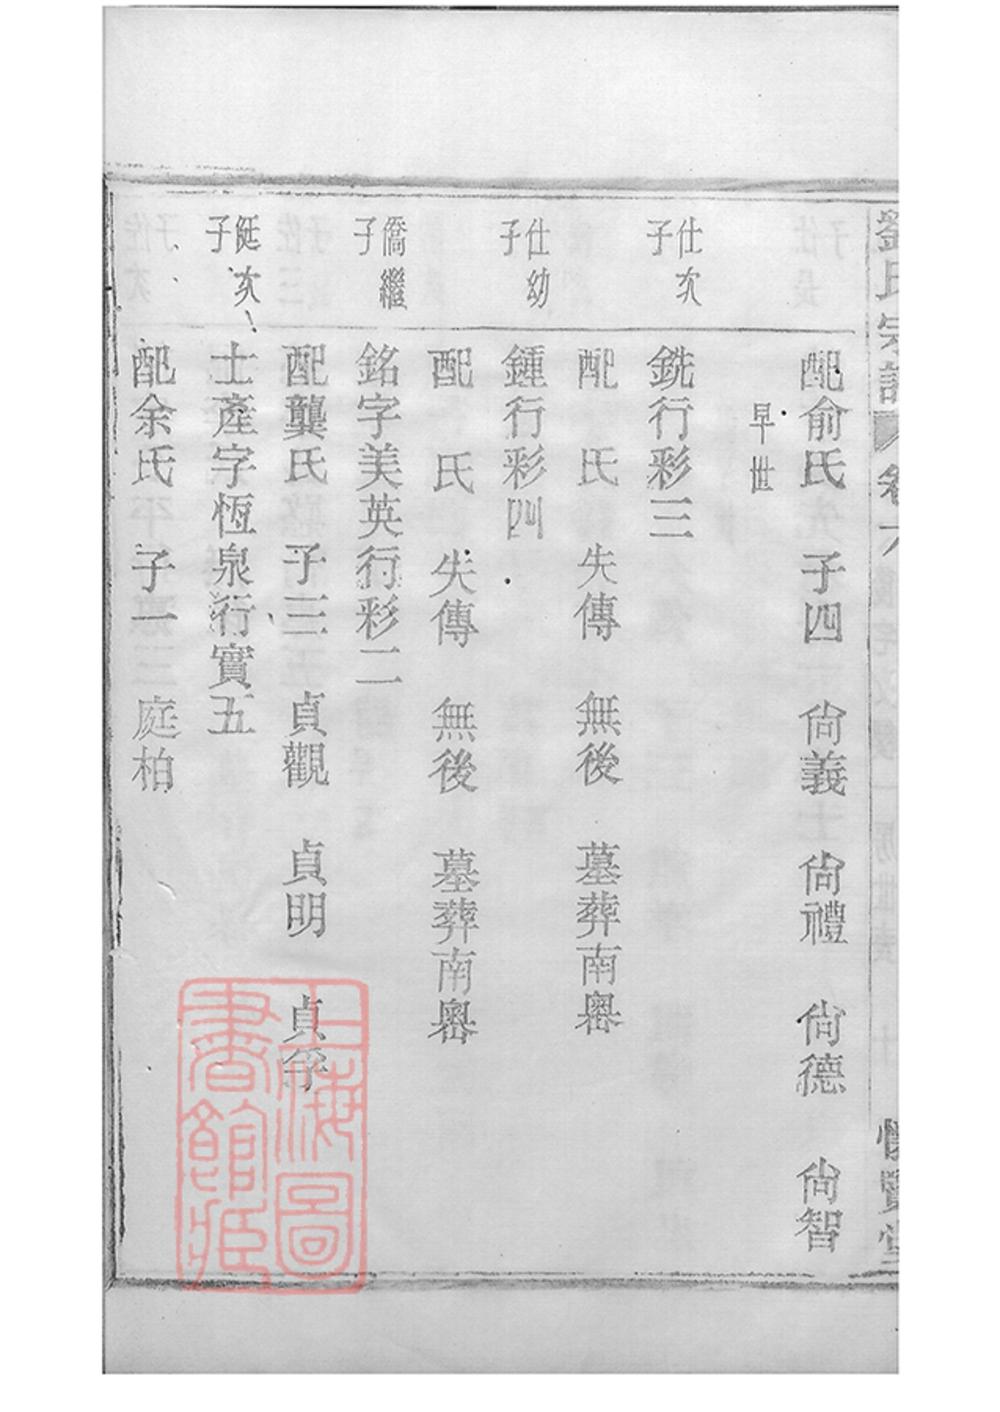 劉氏宗譜 卷
配俞氏 子四 尙義 尙禮 尙德 尙智
早世
仕次子
銑行彩三
配 氏 失傳 無後 墓葬南嶴
仕幼子
鍾行彩四
配 氏 失傳 無後 墓葬南嶴
僑繼子
銘字美英行彩二
配龔氏 子三 貞觀 貞明 貞孚
鋌次子
士產字恆泉行實五
配余氏 子一 庭柏
上海圖書館藏